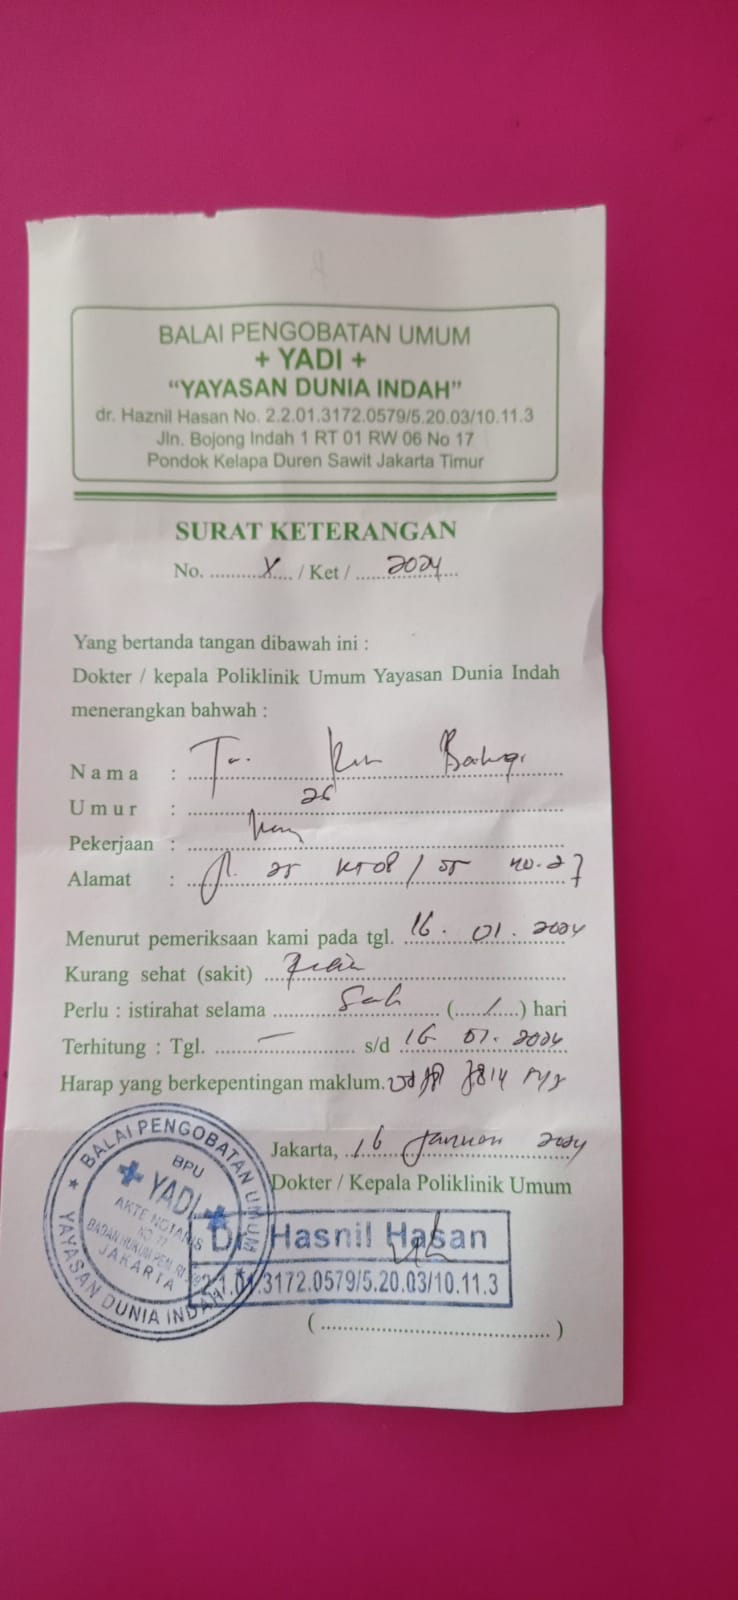 BALAI PENGOBATAN UMUM
+ YADI +
“YAYASAN DUNIA INDAH”
dr. Haznil Hasan No. 2.2.01.3172.0579/5.20.03/10.11.3
Jln. Bojong Indah 1 RT 01 RW 06 No 17
Pondok Kelapa Duren Sawit Jakarta Timur
SURAT KETERANGAN
No. ............. / Ket / ...2024...
Yang bertanda tangan dibawah ini :
Dokter / kepala Poliklinik Umum Yayasan Dunia Indah
menerangkan bahwah :
Nama :
Umur :
Pekerjaan :
Alamat : no. 27
Menurut pemeriksaan kami pada tgl. 16. 01. 2024
Kurang sehat (sakit)
Perlu : istirahat selama (..../....) hari
Terhitung : Tgl. — s/d 16 01. 2024
Harap yang berkepentingan maklum.
Jakarta, 16 Januari 2024
Dokter / Kepala Poliklinik Umum
BALAI PENGOBATAN UMUM
BPU
YADI
AKTE NOTARIS
JAKARTA
YAYASAN DUNIA INDAH
Dr Hasnil Hasan
2.1.01.3172.0579/5.20.03/10.11.3
(........................................)